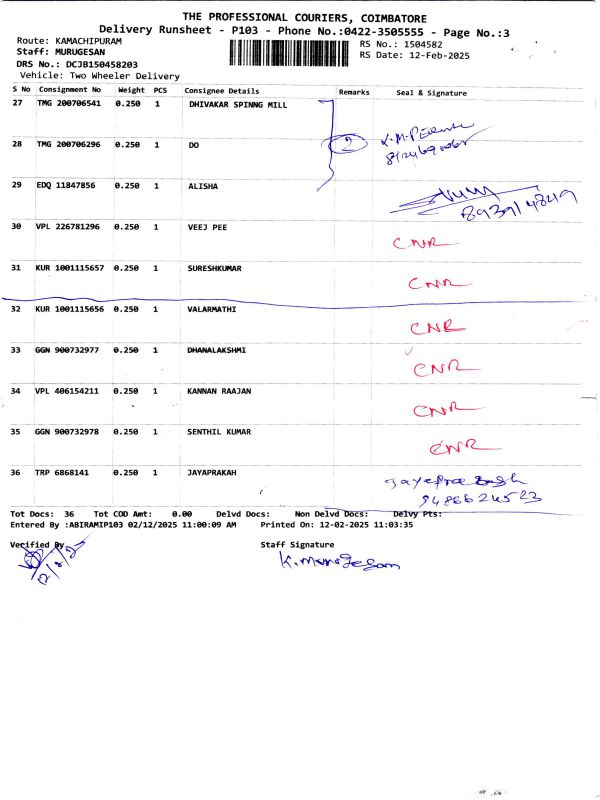 THE PROFESSIONAL COURIERS, COIMBATORE
Delivery Runsheet - P103 - Phone No.:0422-3505555 - Page No.:3
Route: KAMACHIPURAM
RS No.: 1504582
Staff: MURUGESAN
RS Date: 12-Feb-2025
DRS No.: DCJB150458203
Vehicle: Two Wheeler Delivery
S No Consignment No Weight PCS Consignee Details Remarks Seal & Signature
27 TMG 200706541 0.250 1 DHIVAKAR SPINNG MILL
28 TMG 200706296 0.250 1 DO 2
29 EDQ 11847856 0.250 1 ALISHA
30 VPL 226781296 0.250 1 VEEJ PEE CNR
31 KUR 1001115657 0.250 1 SURESHKUMAR CNR
32 KUR 1001115656 0.250 1 VALARMATHI CNR
33 GGN 900732977 0.250 1 DHANALAKSHMI CNR
34 VPL 406154211 0.250 1 KANNAN RAAJAN CNR
35 GGN 900732978 0.250 1 SENTHIL KUMAR CNR
36 TRP 6868141 0.250 1 JAYAPRAKAH
9486624523
Tot Docs: 36 Tot COD Amt: 0.00 Delvd Docs: Non Delvd Docs: Delvy Pts:
Entered By :ABIRAMIP103 02/12/2025 11:00:09 AM Printed On: 12-02-2025 11:03:35
Verified By Staff Signature
K. Murugesan